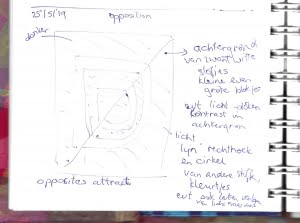 25/5/'19
opposition
donker
achtergrond
van zwart witte
stofjes
kleine even
grote blokjes
evt licht-donker
contrast in
achtergron
licht
lijn rechthoek
en cirkel
van andere stijl,
kleurtjes
evt ook laten
opposites attract